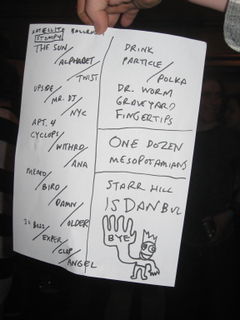 SATELLITE BALLROOM
STOMPBOX
THE SUN/
ALPHABET/
TWIST
UPSIDE/
MR. DJ/
NYC
APT. 4
CYCLOPS/
WITHRO/
ANA
MEMO/
BIRD/
DAMN/
OLDER
BLSS/
EXPER/
CLAP/
ANGEL
DRINK
PARTICLE/
POLKA
DR. WORM
GRAVEYARD
FINGERTIPS
ONE DOZEN
MESOPOTAMIANS
STARR HILL
ISTANBUL
BYE